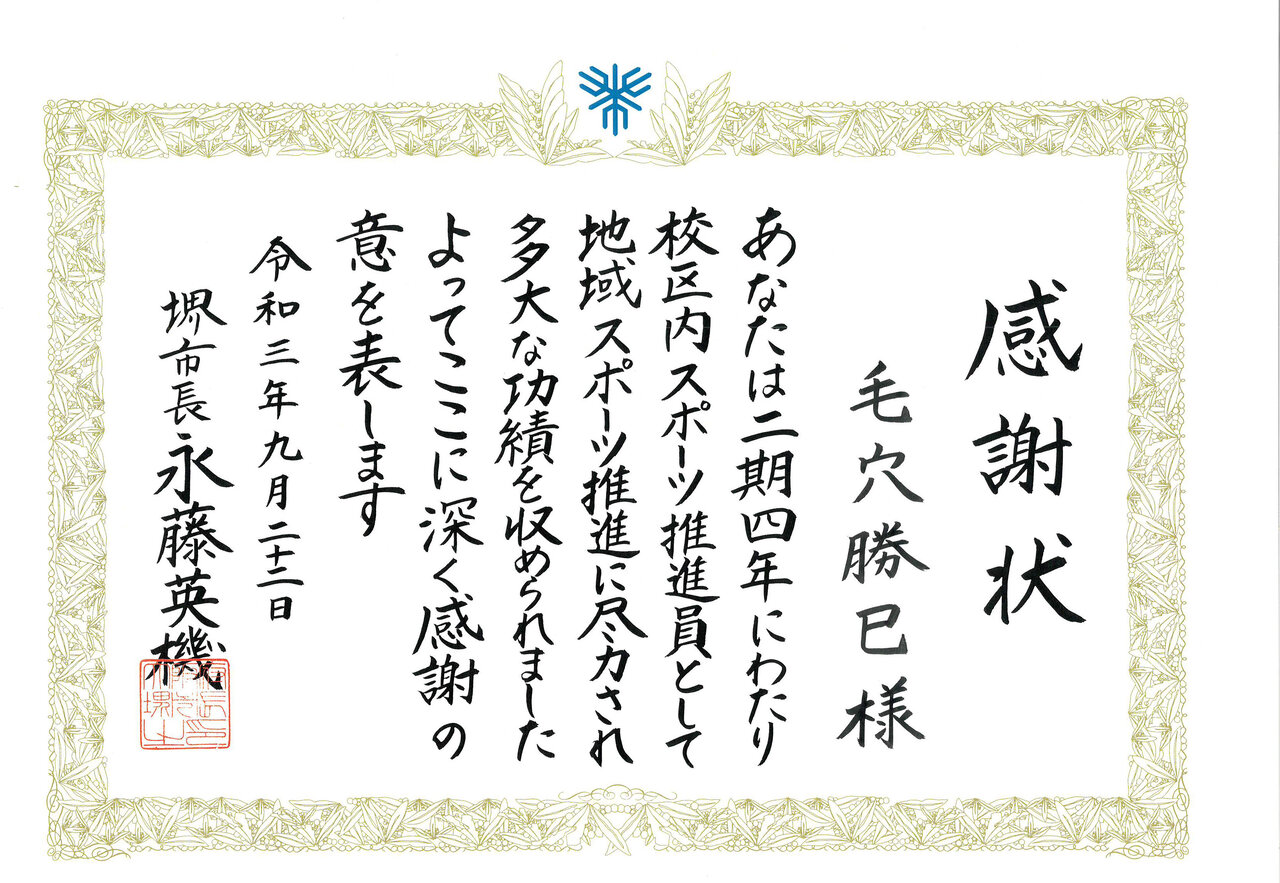 感謝状
毛穴勝巳様
あなたは二期四年にわたり
校区内スポーツ推進員として
地域スポーツ推進に尽力され
多大な功績を収められました
よってここに深く感謝の
意を表します
令和三年九月二十二日
堺市長永藤英機